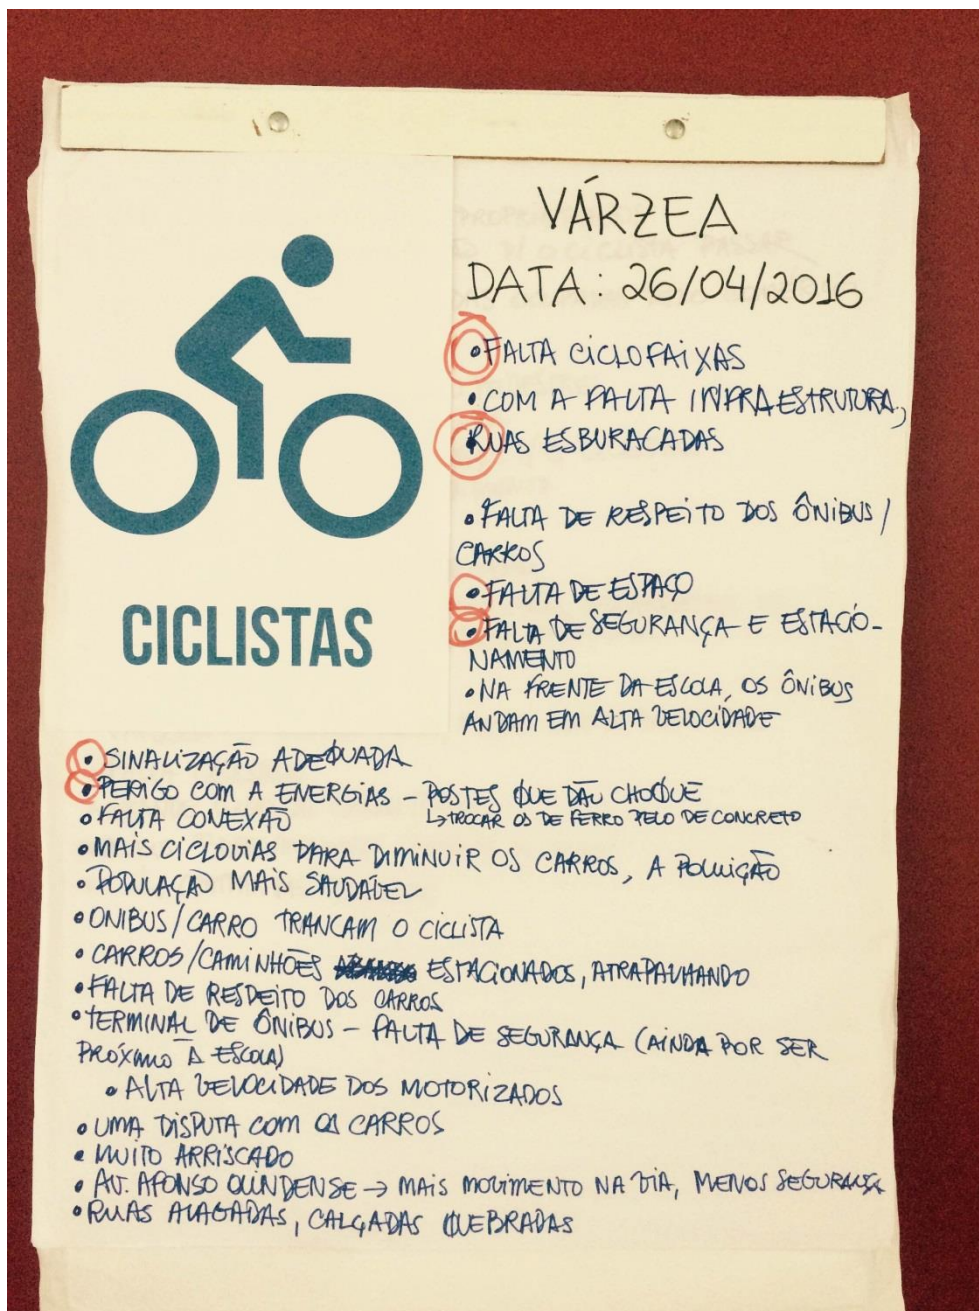 VÁRZEA
DATA: 26/04/2016
CICLISTAS
• FALTA CICLOFAIXAS
• COM A FALTA INFRAESTRUTURA,
RUAS ESBURACADAS
• FALTA DE RESPEITO DOS ÔNIBUS/
CARROS
• FALTA DE ESPAÇO
• FALTA DE SEGURANÇA E ESTACIO-
NAMENTO
• NA FRENTE DA ESCOLA, OS ÔNIBUS
ANDAM EM ALTA VELOCIDADE
• SINALIZAÇÃO ADEQUADA
• PERIGO COM A ENERGIAS – POSTES QUE DÃO CHOQUE
↳ TROCAR OS DE FERRO PELO DE CONCRETO
• FALTA CONEXÃO
• MAIS CICLOVIAS PARA DIMINUIR OS CARROS, A POLUIÇÃO
• POPULAÇÃO MAIS SAUDÁVEL
• ONIBUS/CARRO TRANCAM O CICLISTA
• CARROS/CAMINHÕES ESTACIONADOS, ATRAPALHANDO
• FALTA DE RESPEITO DOS CARROS
• TERMINAL DE ÔNIBUS – FALTA DE SEGURANÇA (AINDA POR SER
PRÓXIMO À ESCOLA)
• ALTA VELOCIDADE DOS MOTORIZADOS
• UMA DISPUTA COM OS CARROS
• MUITO ARRISCADO
• AV. AFONSO OLINDENSE → MAIS MOVIMENTO NA VIA, MENOS SEGURANÇA
• RUAS ALAGADAS, CALÇADAS QUEBRADAS